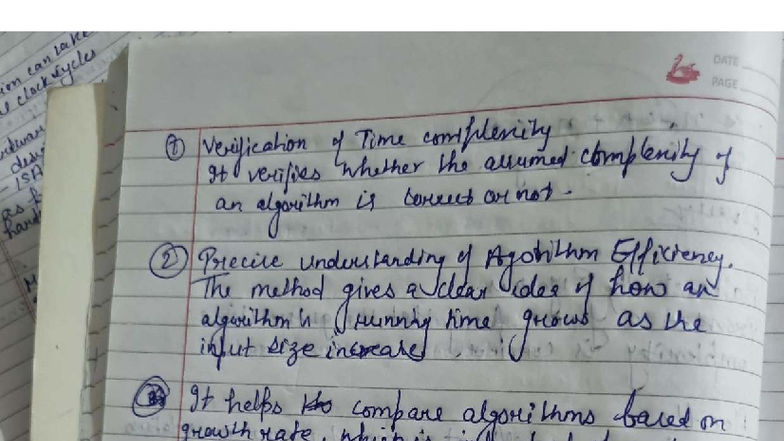 ion can take
clock cycles
ISA
DATE
PAGE
① Verification of Time complexity
It verifies whether the assumed complexity of
an algorithm is correct or not.
② Precise understanding of Agorithm Efficiency.
The method gives a clear idea of how an
algorithm's running time grows as the
input size increases.
③ It helps compare algorithms based on
growth rate, which is